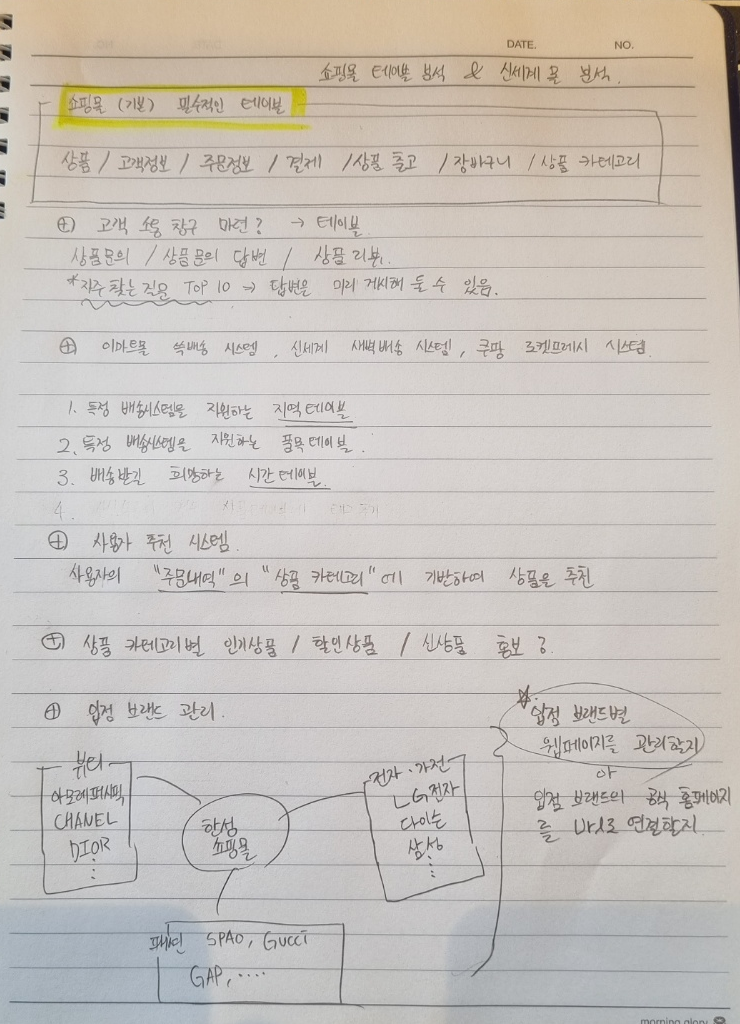 DATE. NO.
쇼핑몰 테이블 분석 & 신세계 몰 분석.
쇼핑몰 (기본) 필수적인 테이블
상품 / 고객정보 / 주문정보 / 결제 / 상품 출고 / 장바구니 / 상품 카테고리
⊕ 고객 소통 창구 마련? → 테이블
상품문의 / 상품문의 답변 / 상품리뷰.
*자주 찾는 질문 TOP 10 → 답변을 미리 게시해 둘 수 있음.
⊕ 이마트몰 쓱배송 시스템, 신세계 새벽배송 시스템, 쿠팡 로켓프레시 시스템
1. 특정 배송시스템을 지원하는 지역테이블
2. 특정 배송시스템을 지원하는 품목테이블.
3. 배송받길 희망하는 시간테이블.
4.
⊕ 사용자 추천 시스템.
사용자의 "주문내역"의 "상품 카테고리"에 기반하여 상품을 추천
⊕ 상품 카테고리별 인기상품 / 할인상품 / 신상품 홍보?
⊕ 입점 브랜드 관리.
입점 브랜드별
웹페이지를 관리할지
or
입점 브랜드의 공식 홈페이지
를 url로 연결할지.
뷰티
아모레퍼시픽
CHANEL
DIOR
⋮
한성
쇼핑몰
전자·가전
LG전자
다이슨
삼성
⋮
패션 SPAO, GUCCI
GAP, ....
morning glory